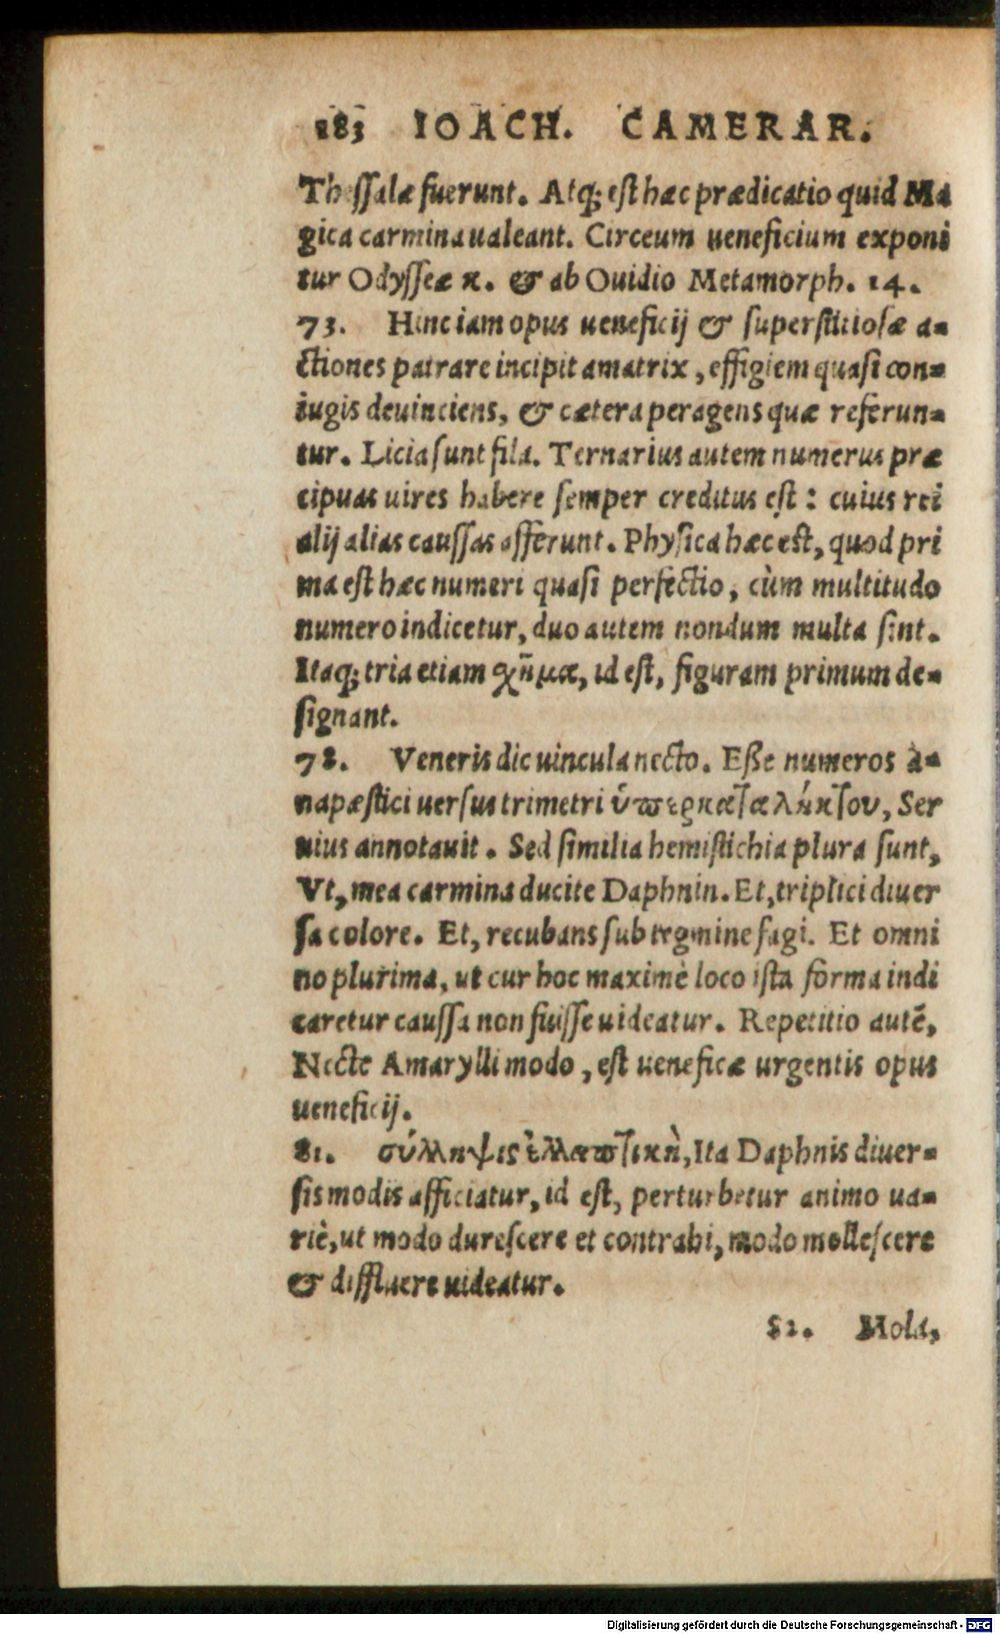 183 IOACH. CAMERAR.
Thessalæ fuerunt. Atq; est hæc prædicatio quid Ma
gica carmina ualeant. Circeum ueneficium exponi
tur Odysseæ κ. & ab Ouidio Metamorph. 14.
73. Hinc iam opus ueneficij & superstitiosæ a-
ctiones patrare incipit amatrix, effigiem quasi con-
iugis deuinciens, & cætera peragens quæ referun-
tur. Licia sunt fila. Ternarius autem numerus præ
cipuas uires habere semper creditus est: cuius rei
alij alias caussas afferunt. Physica hæc est, quod pri
ma est hæc numeri quasi perfectio, cùm multitudo
numero indicetur, duo autem nondum multa sint.
Itaq; tria etiam χῆμα, id est, figuram primum de-
signant.
78. Veneris dic uincula necto. Eße numeros à-
napæstici uersus trimetri ὑπερκαταλήκτου, Ser
uius annotauit. Sed similia hemistichia plura sunt,
Vt, mea carmina ducite Daphnin. Et, triplici diuer
sa colore. Et, recubans sub tegmine fagi. Et omni
no plurima, ut cur hoc maximè loco ista forma indi
caretur caussa non fuisse uideatur. Repetitio autē,
Necte Amarylli modo, est ueneficæ urgentis opus
ueneficij.
81. σύλληψις ἐλλαπτικὴ, Ita Daphnis diuer-
sis modis afficiatur, id est, perturbetur animo ua-
riè, ut modo durescere et contrahi, modo mollescere
& diffluere uideatur.
82. Mola,
Digitalisierung gefördert durch die Deutsche Forschungsgemeinschaft - DFG